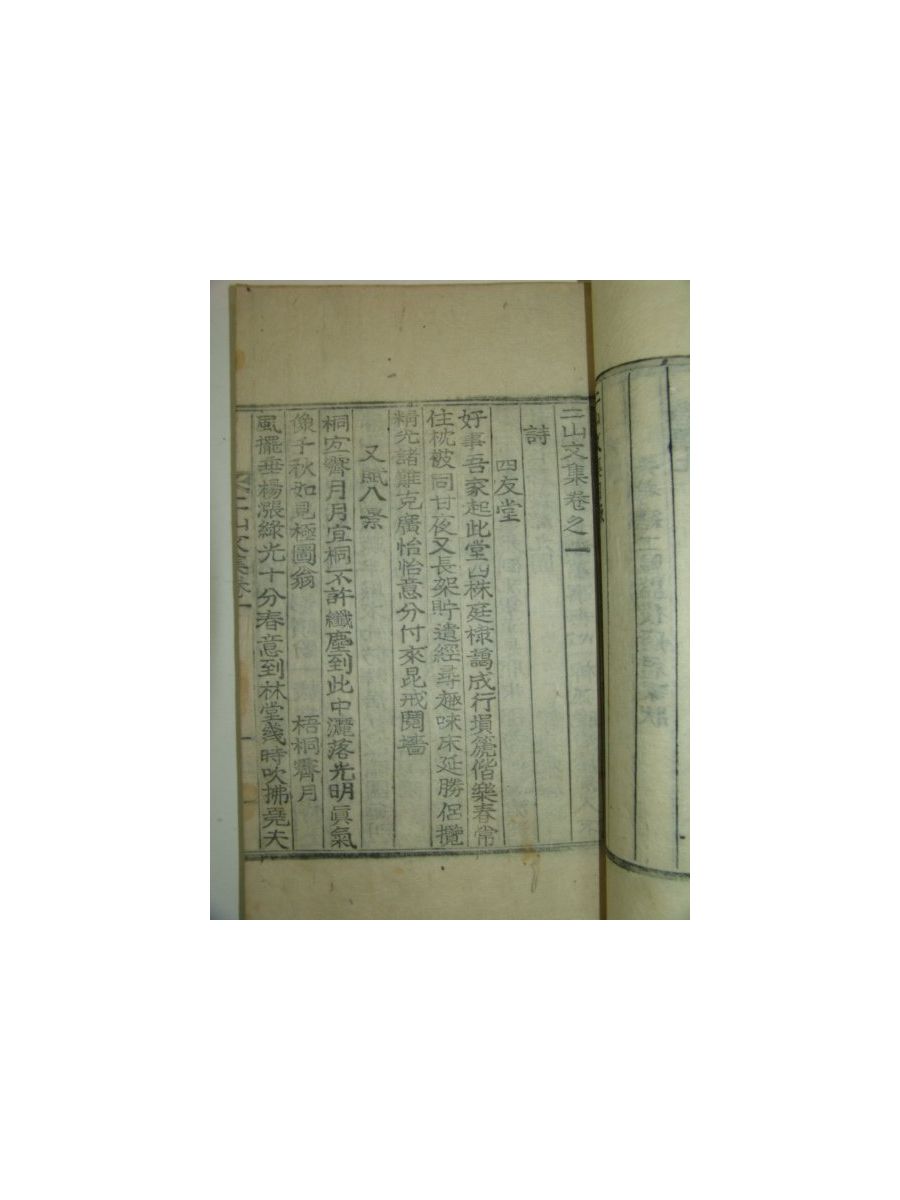 二山文集卷之一
詩
四友堂
好事吾家起此堂四株庭棣藹成行塤篪偕樂春常
住枕被同甘夜又長架貯遺經尋趣味床延勝侶攬
精光諸雛克廣怡怡意分付來昆戒鬩墻
又賦八景
桐宜霽月月宜桐不許纖塵到此中灑落光明眞氣
像千秋如見極圖翁 梧桐霽月
風擺垂楊漲綠光十分春意到林堂幾時吹拂堯夫
二山文集卷一